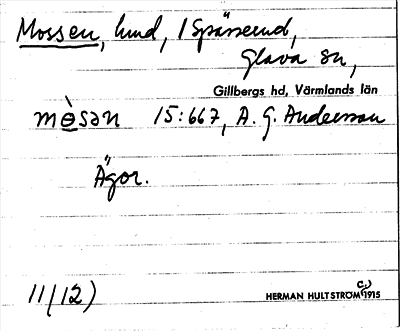 Mossen, hmd, / Spässerud,
Glava sn,
Gillbergs hd, Värmlands län
mèsan 15:667, A. G. Andersson
Ägor.
11(12) HERMAN HULTSTRÖM 1915